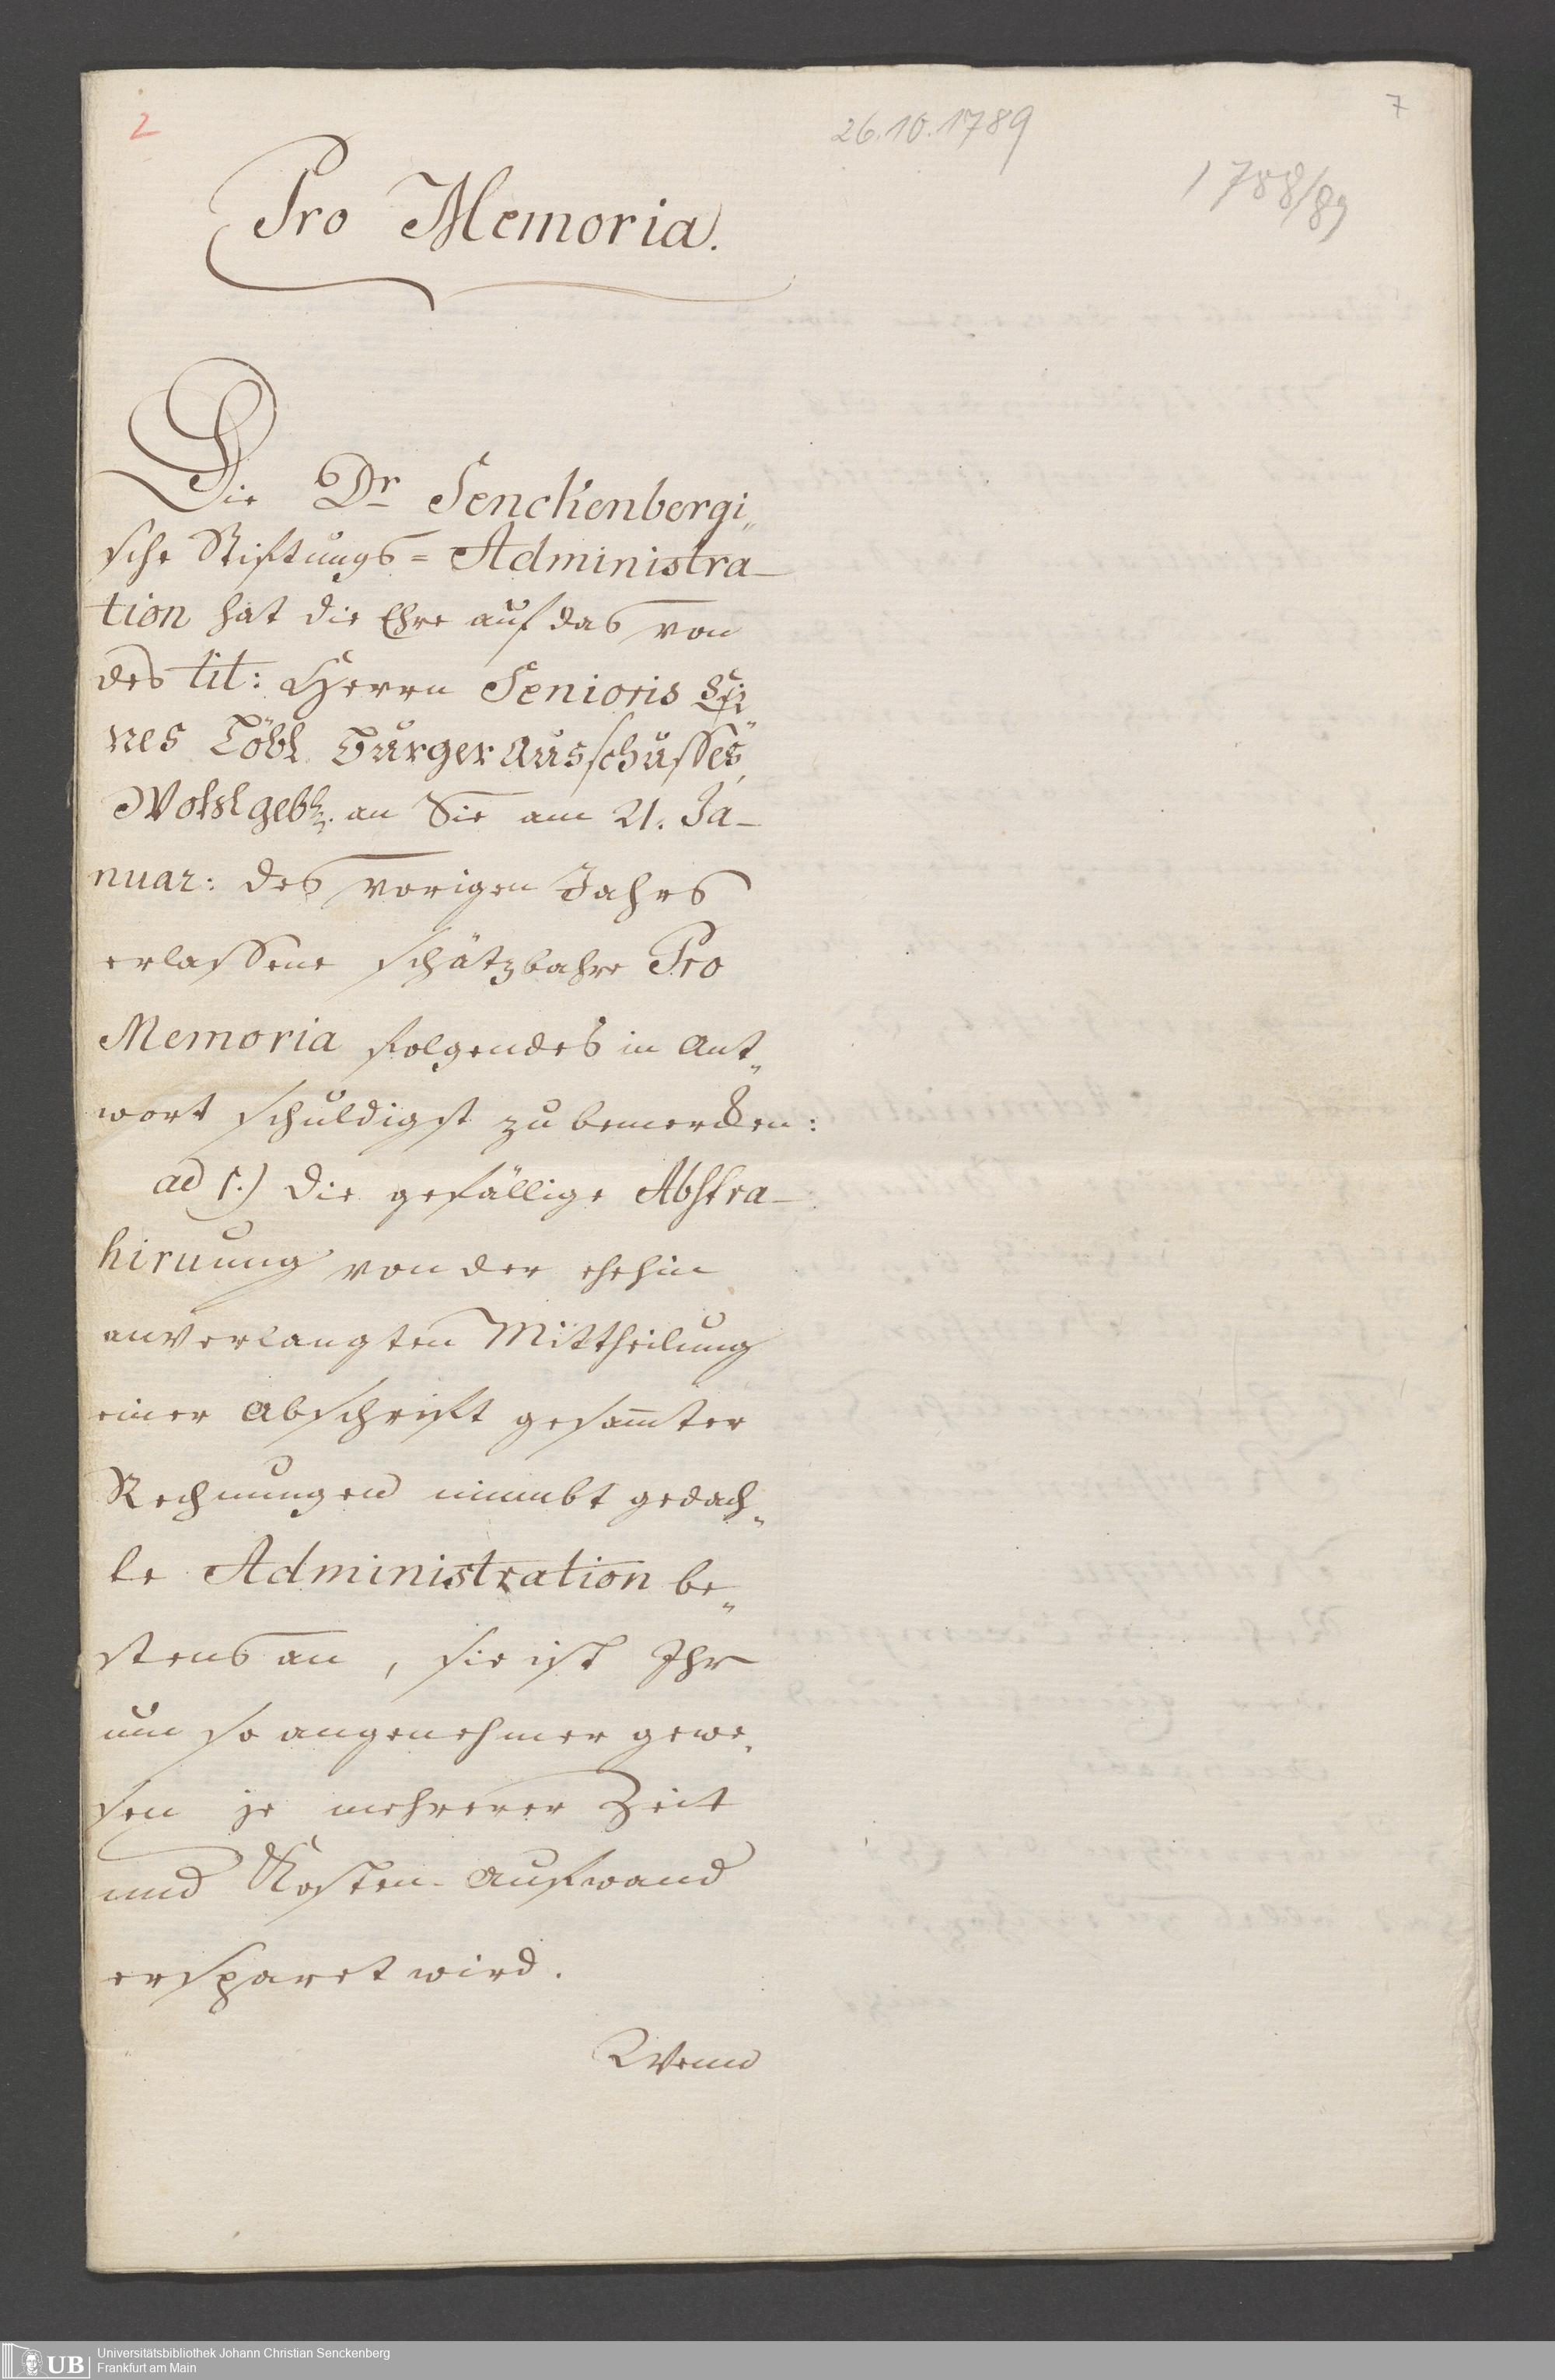 2
26.10.1789
7
1788/89
Pro Memoria.
Die Dr Senckenbergi„
sche Stiftungs=Administra-
tion hat die Ehre auf das von
des tit: Herrn Senioris Ei„
nes Löbl. Burger Ausschusses,
Wohlgeb. an Sie am 21. Ja-
nuar: des vorigen Jahrs
erlassene schätzbahre Pro
Memoria folgendes in Ant„
wort schuldigst zu bemercken:
ad 1.) Die gefällige Abstra-
hiruung von der ehehin
anverlangten Mittheilung
einer Abschrift gesam̅ter
Rechnungen nimmbt gedach„
te Administration be„
stens an, sie ist Ihr
um so angenehmer gewe„
sen je mehrerer Zeit
und Kosten-Aufwand
ersparet wird.
Wenn
UB
Universitätsbibliothek Johann Christian Senckenberg
Frankfurt am Main